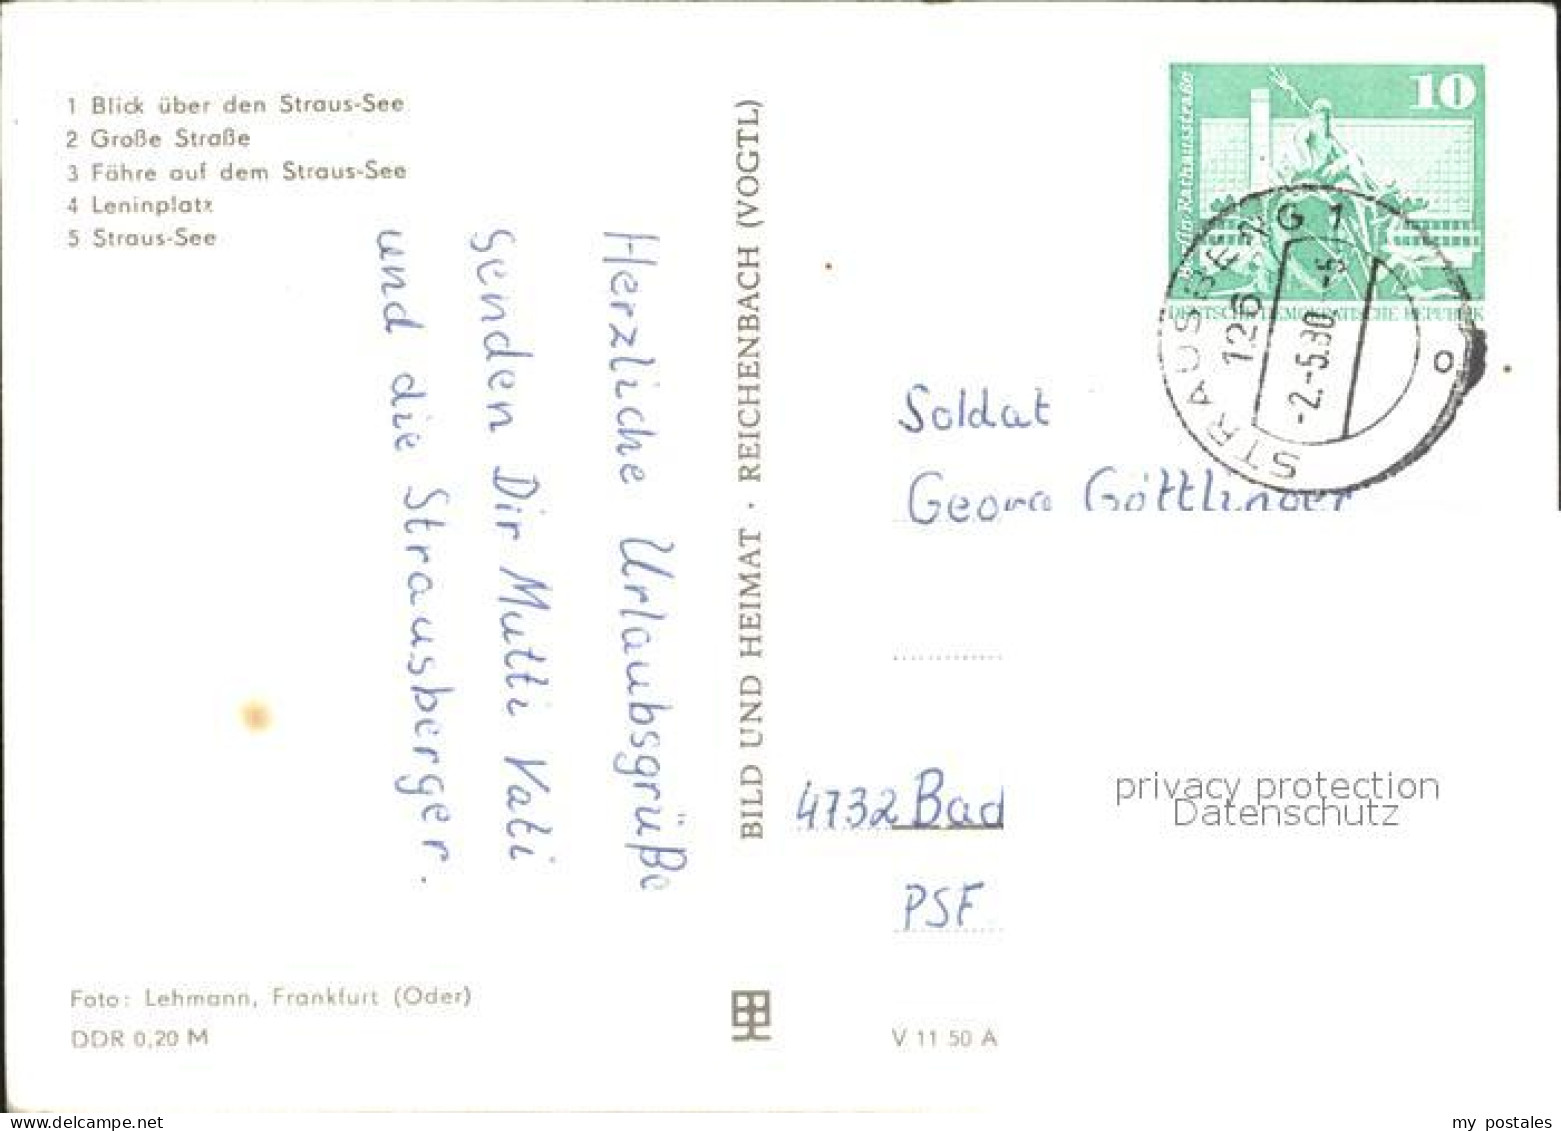 1 Blick über den Straus-See
2 Große Straße
3 Fähre auf dem Straus-See
4 Leninplatz
5 Straus-See
Herzliche Urlaubsgrüße
senden Dir Mutti Vati
und die Strausberger.
Foto: Lehmann, Frankfurt (Oder)
DDR 0,20 M
BILD UND HEIMAT · REICHENBACH (VOGTL)
10
Berlin Rathausstraße
DEUTSCHE DEMOKRATISCHE REPUBLIK
STRAUSBERG 1
126
-2.-5.80 -5
o
Soldat
Georg Göttlinger
4732 Bad
PSF
V 11 50 A
privacy protection
Datenschutz
my postales